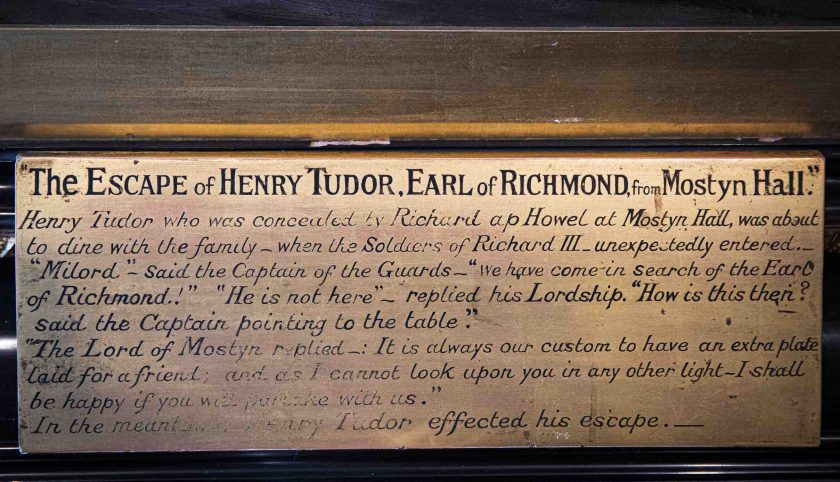 "The Escape of Henry Tudor, Earl of Richmond, from Mostyn Hall."
Henry Tudor who was concealed by Richard ap Howel at Mostyn Hall, was about
to dine with the family – when the Soldiers of Richard III – unexpectedly entered. –
"Milord" – said the Captain of the Guards – "We have come in search of the Earl
of Richmond.!" "He is not here" – replied his Lordship. "How is this then?
said the Captain pointing to the table."
"The Lord of Mostyn replied –: It is always our custom to have an extra plate
laid for a friend; and as I cannot look upon you in any other light – I shall
be happy if you will partake with us."
In the meantime Henry Tudor effected his escape. —